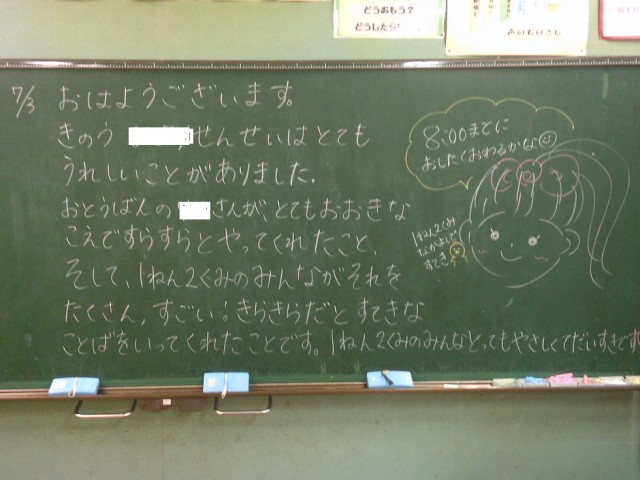 どうおもう?
どうしたら!
7/3 おはようございます。
きのう せんせいはとても
うれしいことがありました.
おとうばんの さんが、とてもおおきな
こえですらすらとやってくれたこと、
そして、1ねん2くみのみんながそれを
たくさん、すごい!きらきらだとすてきな
ことばをいってくれたことです。1ねん2くみのみんなとってもやさしくてだいすきです
8:00までに
おしたくおわるかな
1ねん2くみ
なかよしで
すてき